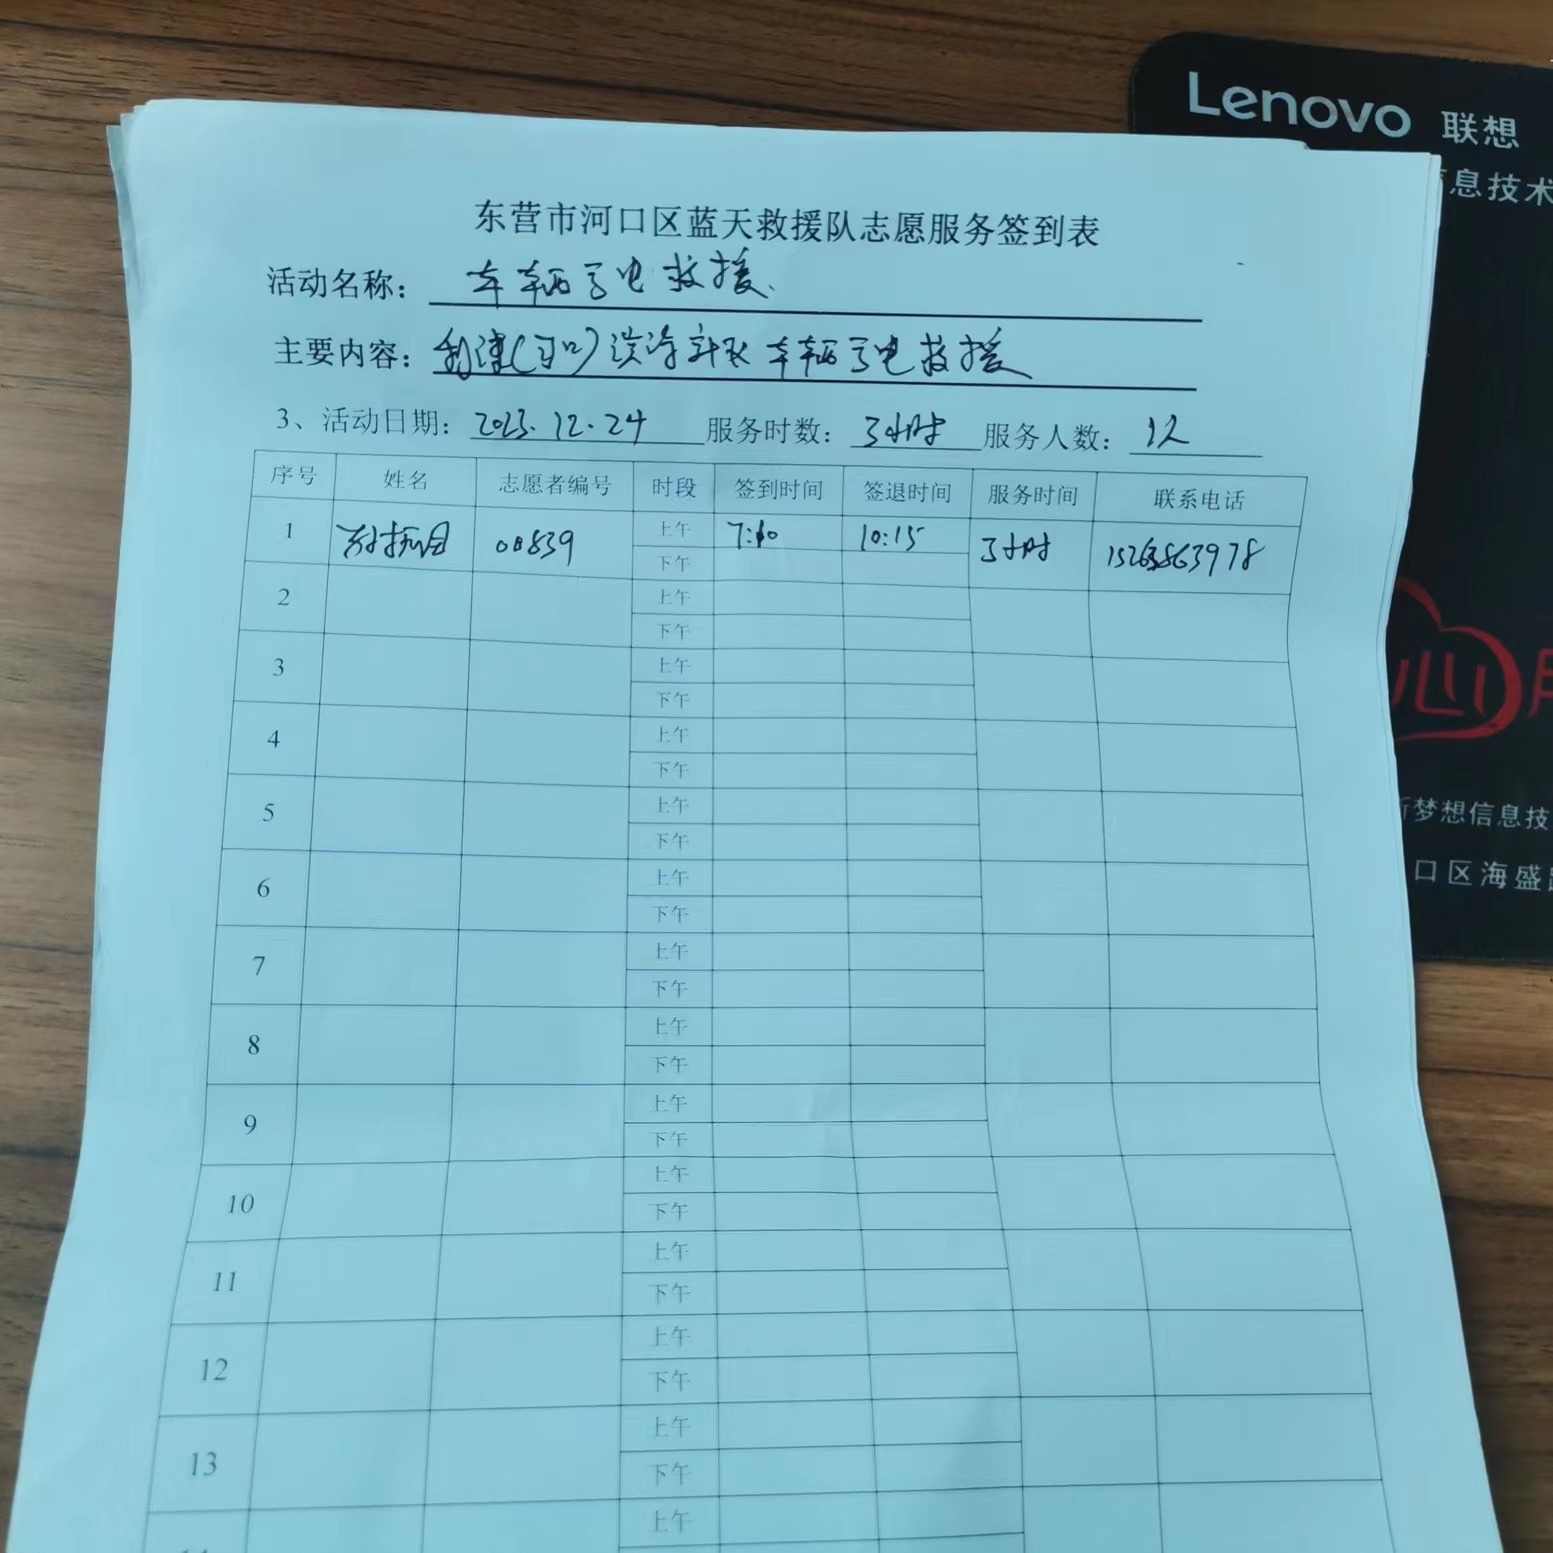 Lenovo 联想
息技术
东营市河口区蓝天救援队志愿服务签到表
活动名称： 车辆亏电救援
主要内容： 利津(河口) 车辆亏电救援
3、活动日期： 2023.12.24 服务时数： 3小时 服务人数： 1人
序号 姓名 志愿者编号 时段 签到时间 签退时间 服务时间 联系电话
1 00839 上午 7:10 10:15 3小时 15263863978
下午
2 上午
下午
3 上午
下午
4 上午
下午
5 上午
下午
6 上午
下午
7 上午
下午
8 上午
下午
9 上午
下午
10 上午
下午
11 上午
下午
12 上午
下午
13 上午
下午
上午
心
梦想信息技
口区海盛